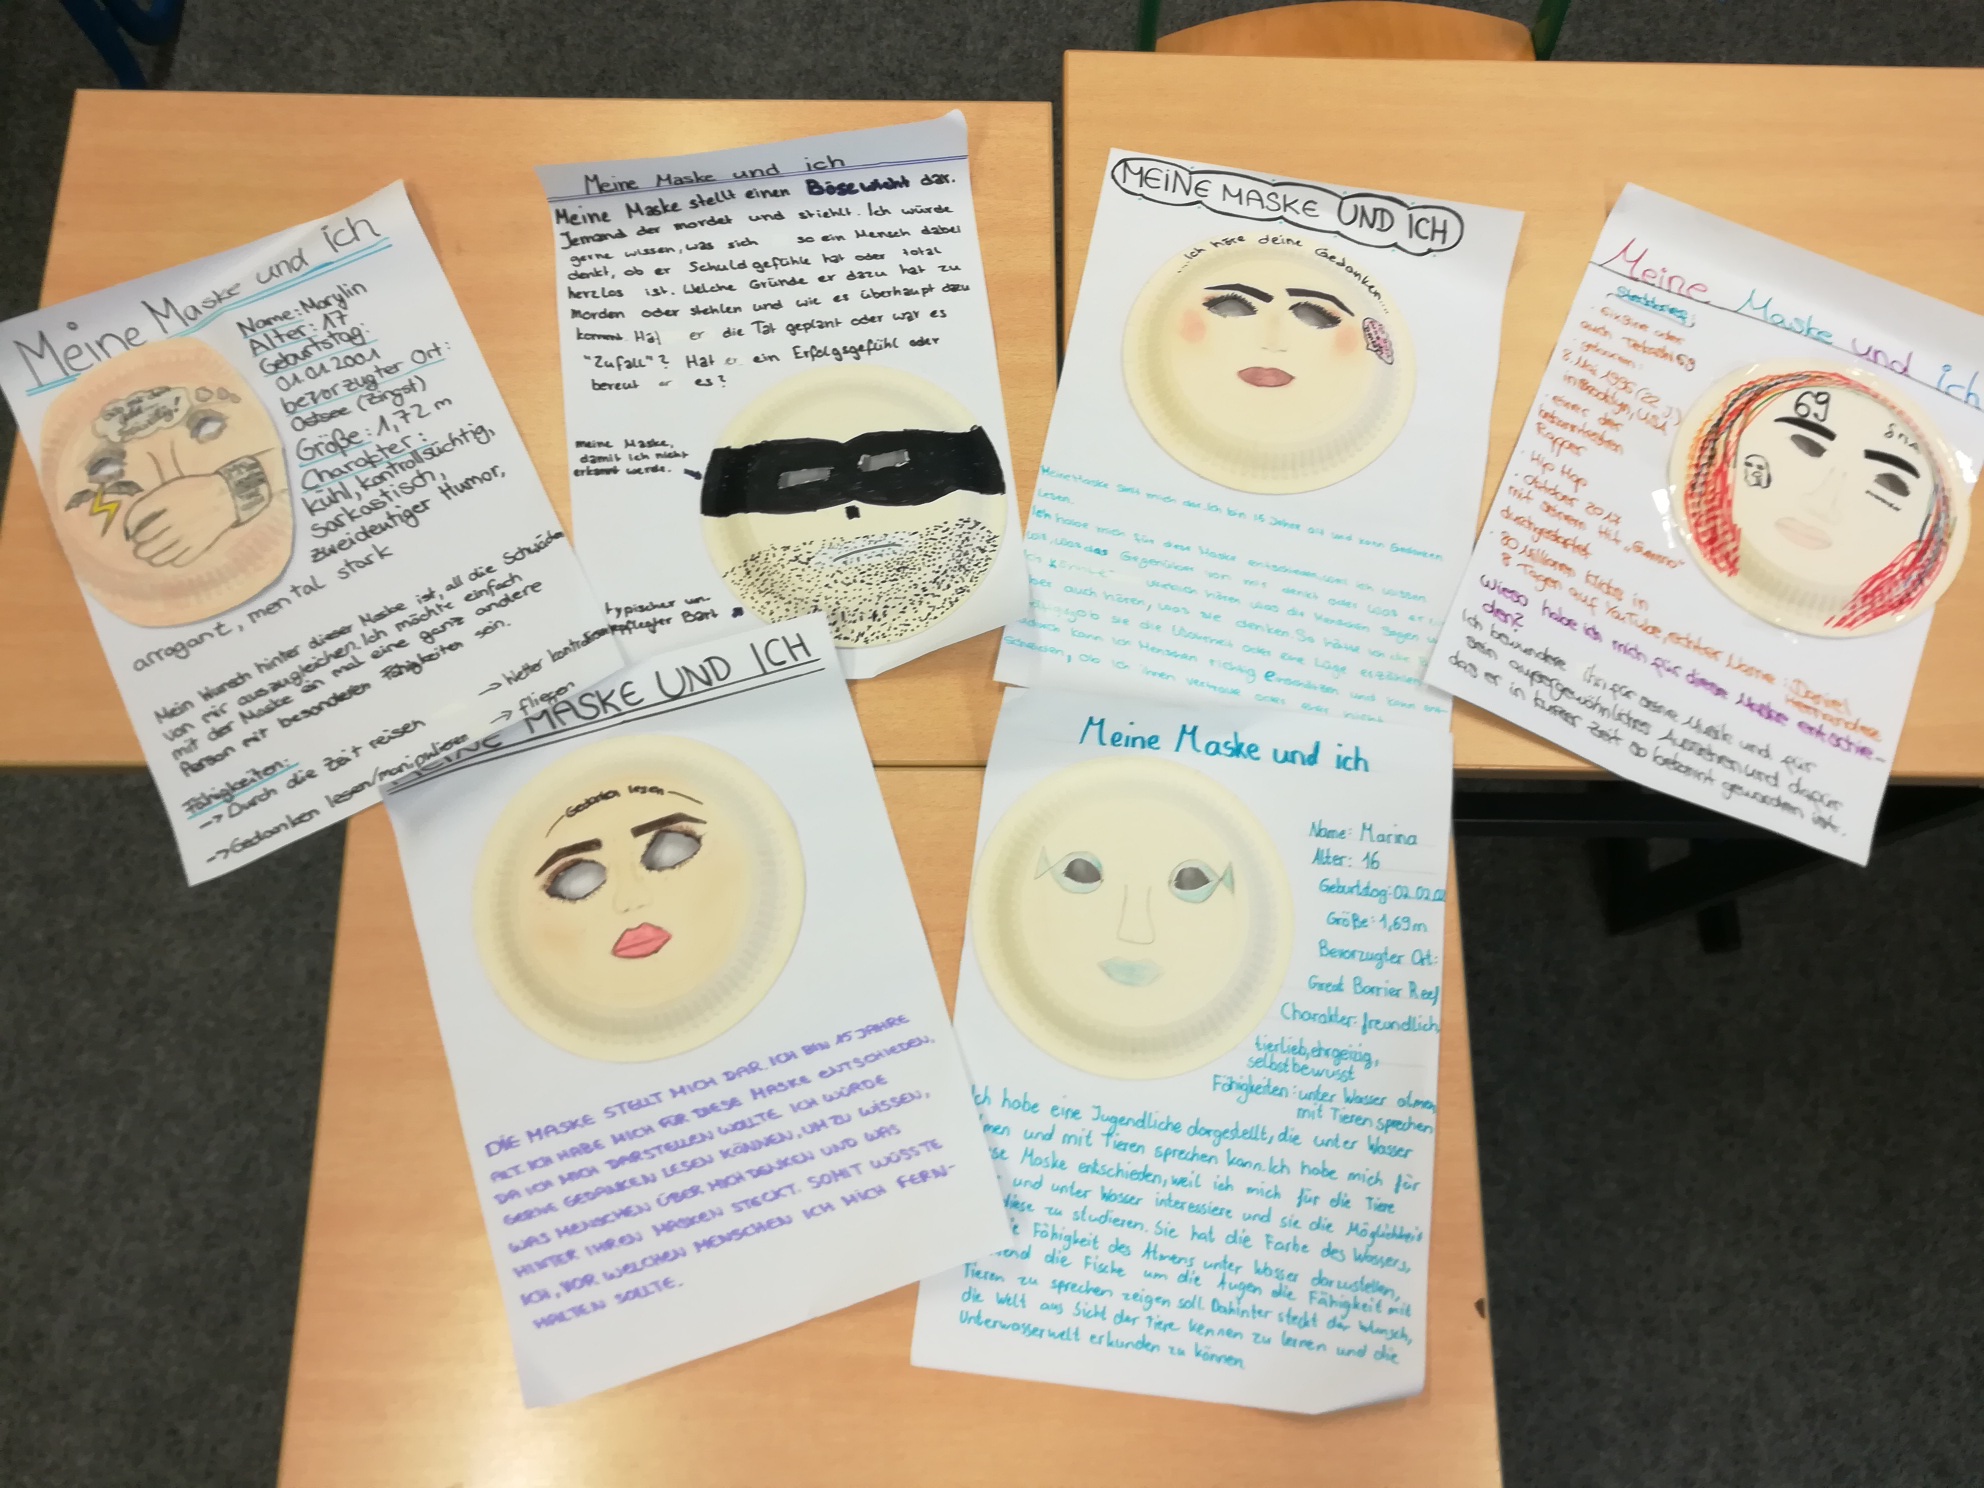 Meine Maske und ich
Name: Marylin
Alter: 17
Geburtstag:
01.01.2001
bevorzugter Ort:
Ostsee (Zingst)
Größe: 1,72 m
Charakter:
kühl, kontrollsüchtig,
sarkastisch,
zweideutiger Humor,
arrogant, mental stark
Mein Wunsch hinter dieser Maske ist, all die Schwäche
von mir auszugleichen. Ich möchte einfach
mit der Maske ein mal eine ganz andere
Person mit besonderen Fähigkeiten sein.
Fähigkeiten:
-> Durch die Zeit reisen
-> Wetter
-> fliegen
-> Gedanken lesen/manipulieren
Meine Maske und ich
Meine Maske stellt einen Bösewicht dar.
Jemand der mordet und stiehlt. Ich würde
gerne wissen, was sich so ein Mensch dabei
denkt, ob er Schuldgefühle hat oder total
herzlos ist. Welche Gründe er dazu hat zu
morden oder stehlen und wie es überhaupt dazu
kommt. Hat er die Tat geplant oder war es
"Zufall"? Hat er ein Erfolgsgefühl oder
bereut er es?
meine Maske,
damit ich nicht
erkannt werde.
typischer un-
gepflegter Bart
MEINE MASKE UND ICH
...Ich höre deine Gedanken...
Meine Maske stellt mich dar. Ich bin 15 Jahre alt und kann Gedanken
lesen.
Ich habe mich für diese Maske entschieden, weil ich wissen
was das Gegenüber von mir denkt oder was er
Ich könnte hören was die Menschen sagen
aber auch hören, was sie denken. So hätte ich die
ob sie die Wahrheit oder eine Lüge erzählen
dadurch kann ich Menschen richtig einschätzen und kann ent-
scheiden, ob ich ihnen vertraue oder eher nicht.
Meine Maske und ich
Steckbrief:
6ix9ine oder
auch Tekashi69
geboren:
8. Mai 1996 (22 J.)
in Brooklyn, USA
einer der
bekanntesten
Rapper
Hip Hop
Oktober 2017
mit seinem Hit "Gummo"
durchgestartet
20 Millionen Klicks in
8 Tagen auf YouTube, echter Name: Daniel
Hernandez
Wieso habe ich mich für diese Maske entschie-
den?
Ich bewundere ihn für seine Musik und für
sein außergewöhnliches Aussehen und dafür
das er in kurzer Zeit so bekannt geworden ist.
69
MEINE MASKE UND ICH
Gedanken lesen
DIE MASKE STELLT MICH DAR. ICH BIN 15 JAHRE
ALT. ICH HABE MICH FÜR DIESE MASKE ENTSCHIEDEN,
DA ICH MICH DARSTELLEN WOLLTE. ICH WÜRDE
GERNE GEDANKEN LESEN KÖNNEN, UM ZU WISSEN,
WAS MENSCHEN ÜBER MICH DENKEN UND WAS
HINTER IHREN MASKEN STECKT. SOMIT WÜSSTE
ICH, VOR WELCHEN MENSCHEN ICH MICH FERN-
HALTEN SOLLTE.
Meine Maske und ich
Name: Marina
Alter: 16
Geburtstag: 02.02.02
Größe: 1,69m
Bevorzugter Ort:
Great Barrier Reef
Charakter: freundlich
tierlieb, ehrgeizig,
selbstbewusst
Fähigkeiten: unter Wasser atmen,
mit Tieren sprechen
Ich habe eine Jugendliche dargestellt, die unter Wasser
men und mit Tieren sprechen kann. Ich habe mich für
se Maske entschieden, weil ich mich für die Tiere
und unter Wasser interessiere und sie die Möglichkeit
diese zu studieren. Sie hat die Farbe des Wassers,
e Fähigkeit des Atmens unter Wasser darzustellen,
rend die Fische um die Augen die Fähigkeit mit
Tieren zu sprechen zeigen soll. Dahinter steckt der Wunsch,
die Welt aus Sicht der Tiere kennen zu lernen und die
Unterwasserwelt erkunden zu können